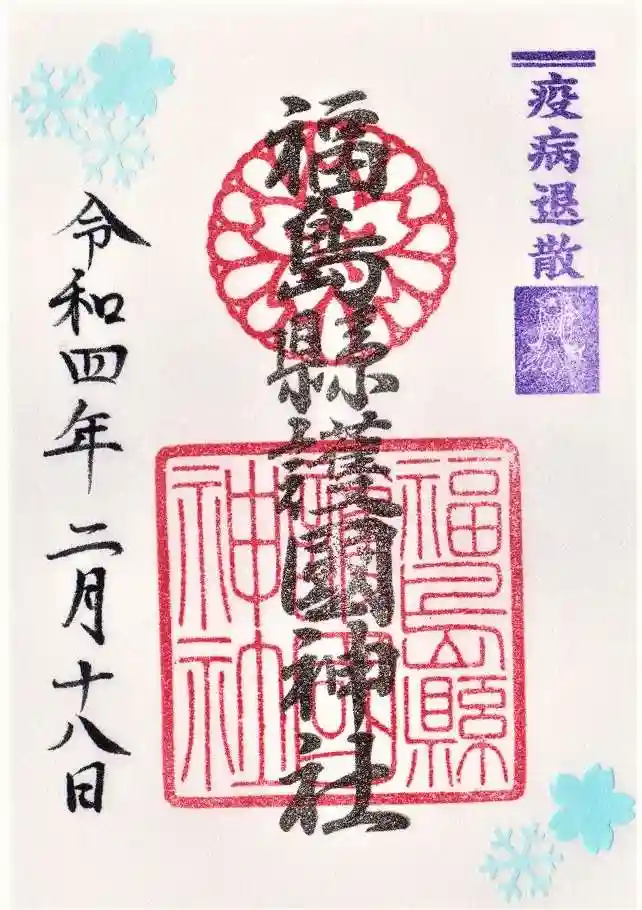 疫病退散
福島縣護國神社
福島縣
護國
神社
令和四年 二月十八日